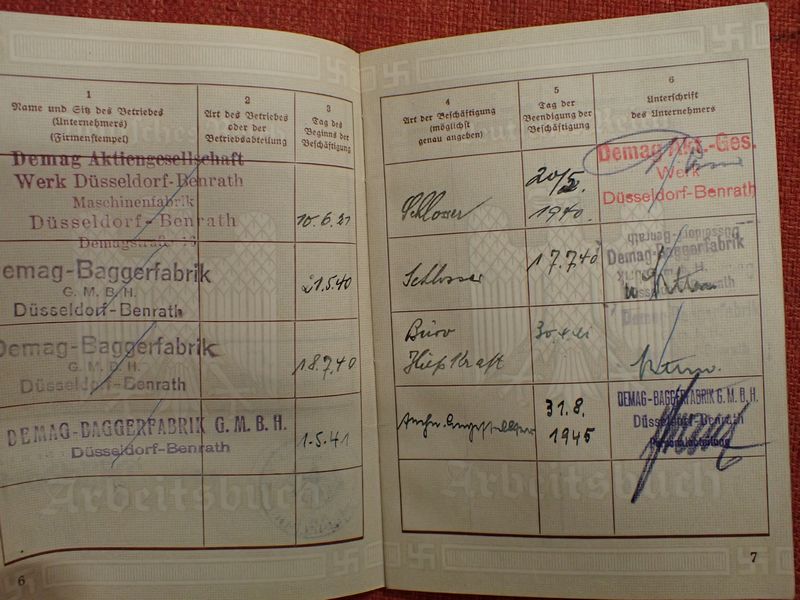 1
Name und Sitz des Betriebes
(Unternehmers)
(Firmenstempel)
2
Art des Betriebes
oder der
Betriebsabteilung
3
Tag des
Beginns der
Beschäftigung
Demag Aktiengesellschaft
Werk Düsseldorf-Benrath
Maschinenfabrik
Düsseldorf-Benrath
Demagstraße 16
10.6.21
Demag-Baggerfabrik
G. M. B. H.
Düsseldorf-Benrath
21.5.40
Demag-Baggerfabrik
G. M. B. H.
Düsseldorf-Benrath
18.7.40
DEMAG-BAGGERFABRIK G. M. B. H.
Düsseldorf-Benrath
1.5.41
Arbeitsbuch
6
4
Art der Beschäftigung
(möglichst
genau angeben)
5
Tag der
Beendigung der
Beschäftigung
6
Unterschrift
des Unternehmers
Schlosser
20/5.
1940.
Demag Akt.-Ges.
Werk
Düsseldorf-Benrath
Schlosser
17.7.40
Düsseldorf-Benrath
Demag-Baggerfabrik
G. M. B. H.
Düsseldorf-Benrath
Büro
Hilfskraft
30.4.41
31.8.
1945
DEMAG-BAGGERFABRIK G. M. B. H.
Düsseldorf-Benrath
Personalabteilung
Arbeitsbuch
7